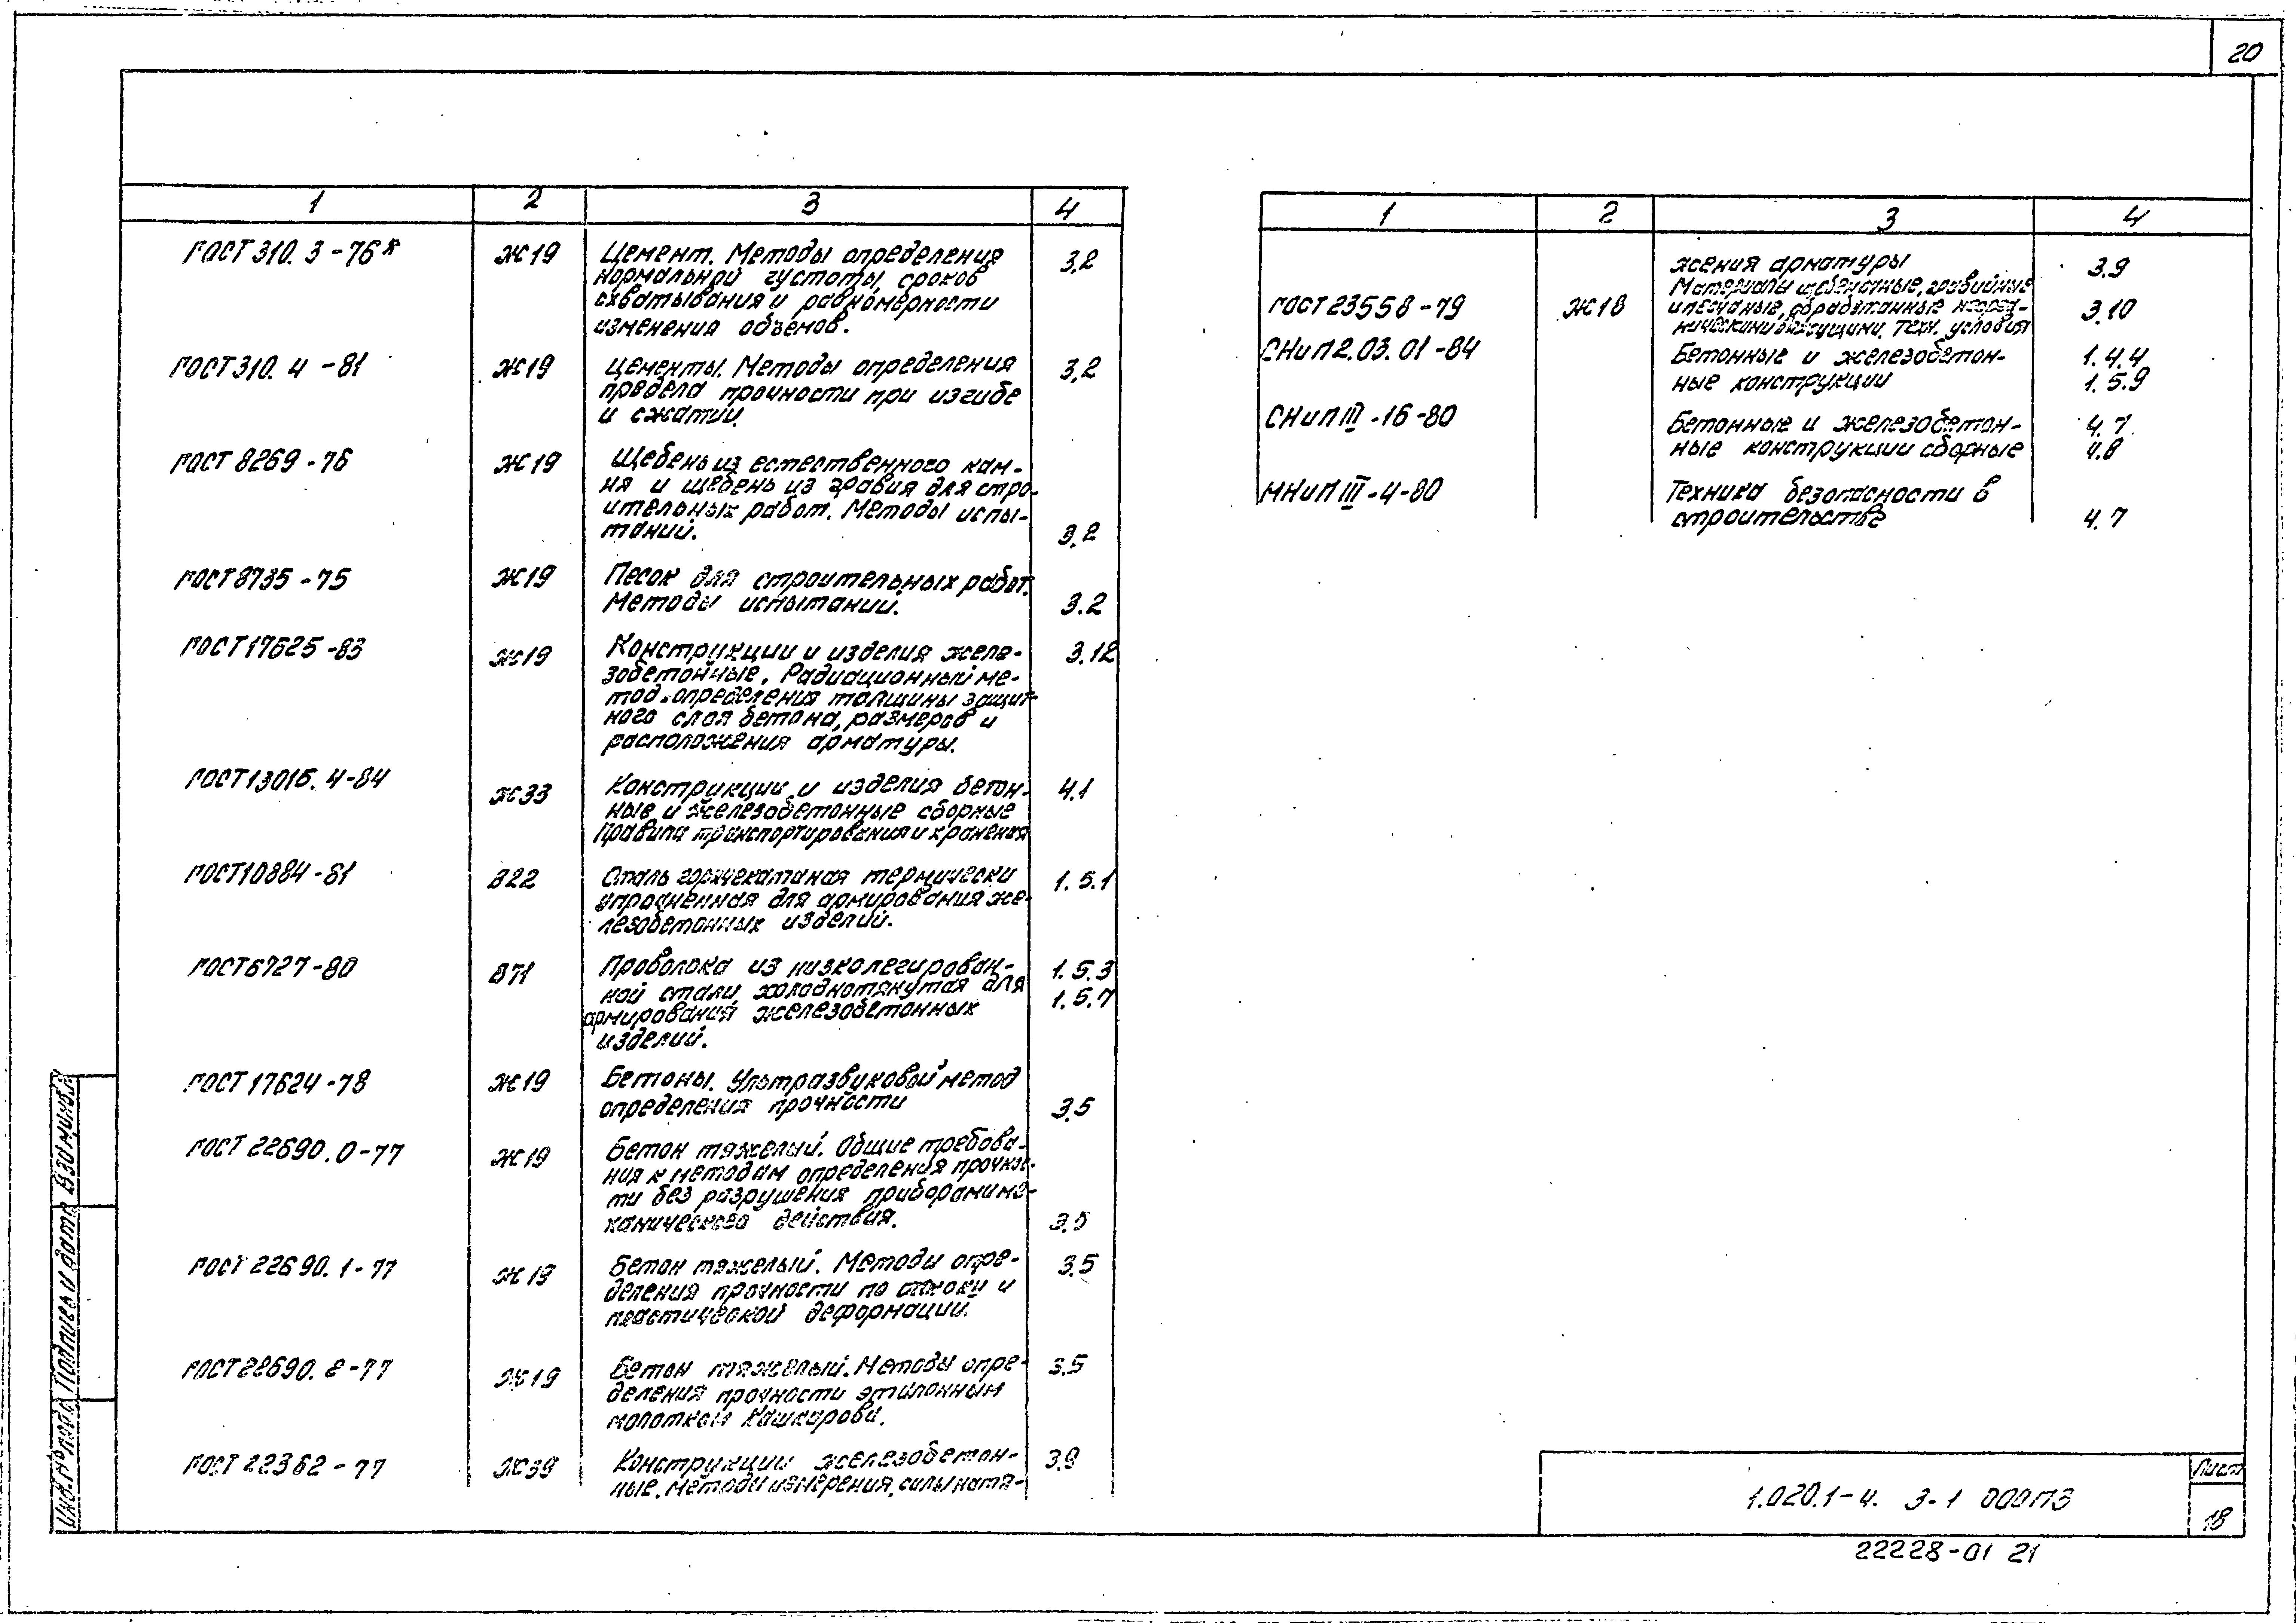 20
1 2 3 4
ГОСТ 310.3-76* Ж19 Цемент. Методы определения 3.2
нормальной густоты, сроков
схватывания и равномерности
изменения объемов.
ГОСТ 310.4-81 Ж19 Цементы. Методы определения 3.2
предела прочности при изгибе
и сжатии.
ГОСТ 8269-76 Ж19 Щебень из естественного кам-
ня и щебень из гравия для стро-
ительных работ. Методы испы-
таний. 3.2
ГОСТ 8735-75 Ж19 Песок для строительных работ.
Методы испытаний. 3.2
ГОСТ 17625-83 Ж19 Конструкции и изделия желе- 3.12
зобетонные. Радиационный ме-
тод определения толщины защит-
ного слоя бетона, размеров и
расположения арматуры.
ГОСТ 13015.4-84 Ж33 Конструкции и изделия бетон- 4.1
ные и железобетонные сборные
Правила транспортирования и хранения
ГОСТ 10884-81 В22 Сталь горячекатаная термически 1.5.1
упрочненная для армирования же-
лезобетонных изделий.
ГОСТ 6727-80 В71 Проволока из низколегирован- 1.5.3
ной стали холоднотянутая для 1.5.7
армирования железобетонных
изделий.
ГОСТ 17624-78 Ж19 Бетоны. Ультразвуковой метод
определения прочности 3.5
ГОСТ 22690.0-77 Ж19 Бетон тяжелый. Общие требова-
ния к методам определения прочнос-
ти без разрушения приборами ме-
ханического действия. 3.5
ГОСТ 22690.1-77 Ж19 Бетон тяжелый. Методы опре- 3.5
деления прочности по отскоку и
пластической деформации.
ГОСТ 22690.2-77 Ж19 Бетон тяжелый. Методы опре- 3.5
деления прочности эталонным
молотком Кашкарова.
ГОСТ 22362-77 Ж39 Конструкции железобетон- 3.9
ные. Методы измерения силы натя-
1 2 3 4
жения арматуры 3.9
Материалы щебеночные, гравийные
ГОСТ 23558-79 Ж18 и песчаные, обработанные неорга- 3.10
ническими вяжущими. Техн. условия
СНиП 2.03.01-84 Бетонные и железобетон- 1.4.4
ные конструкции 1.5.9
СНиП III-16-80 Бетонные и железобетон- 4.7
ные конструкции сборные 4.8
МНиП III-4-80 Техника безопасности в
строительстве 4.7
Инв.№ подл. Подпись и дата Взам.инв.№
1.020.1-4. 3-1 000ПЗ
Лист
18
22228-01 21